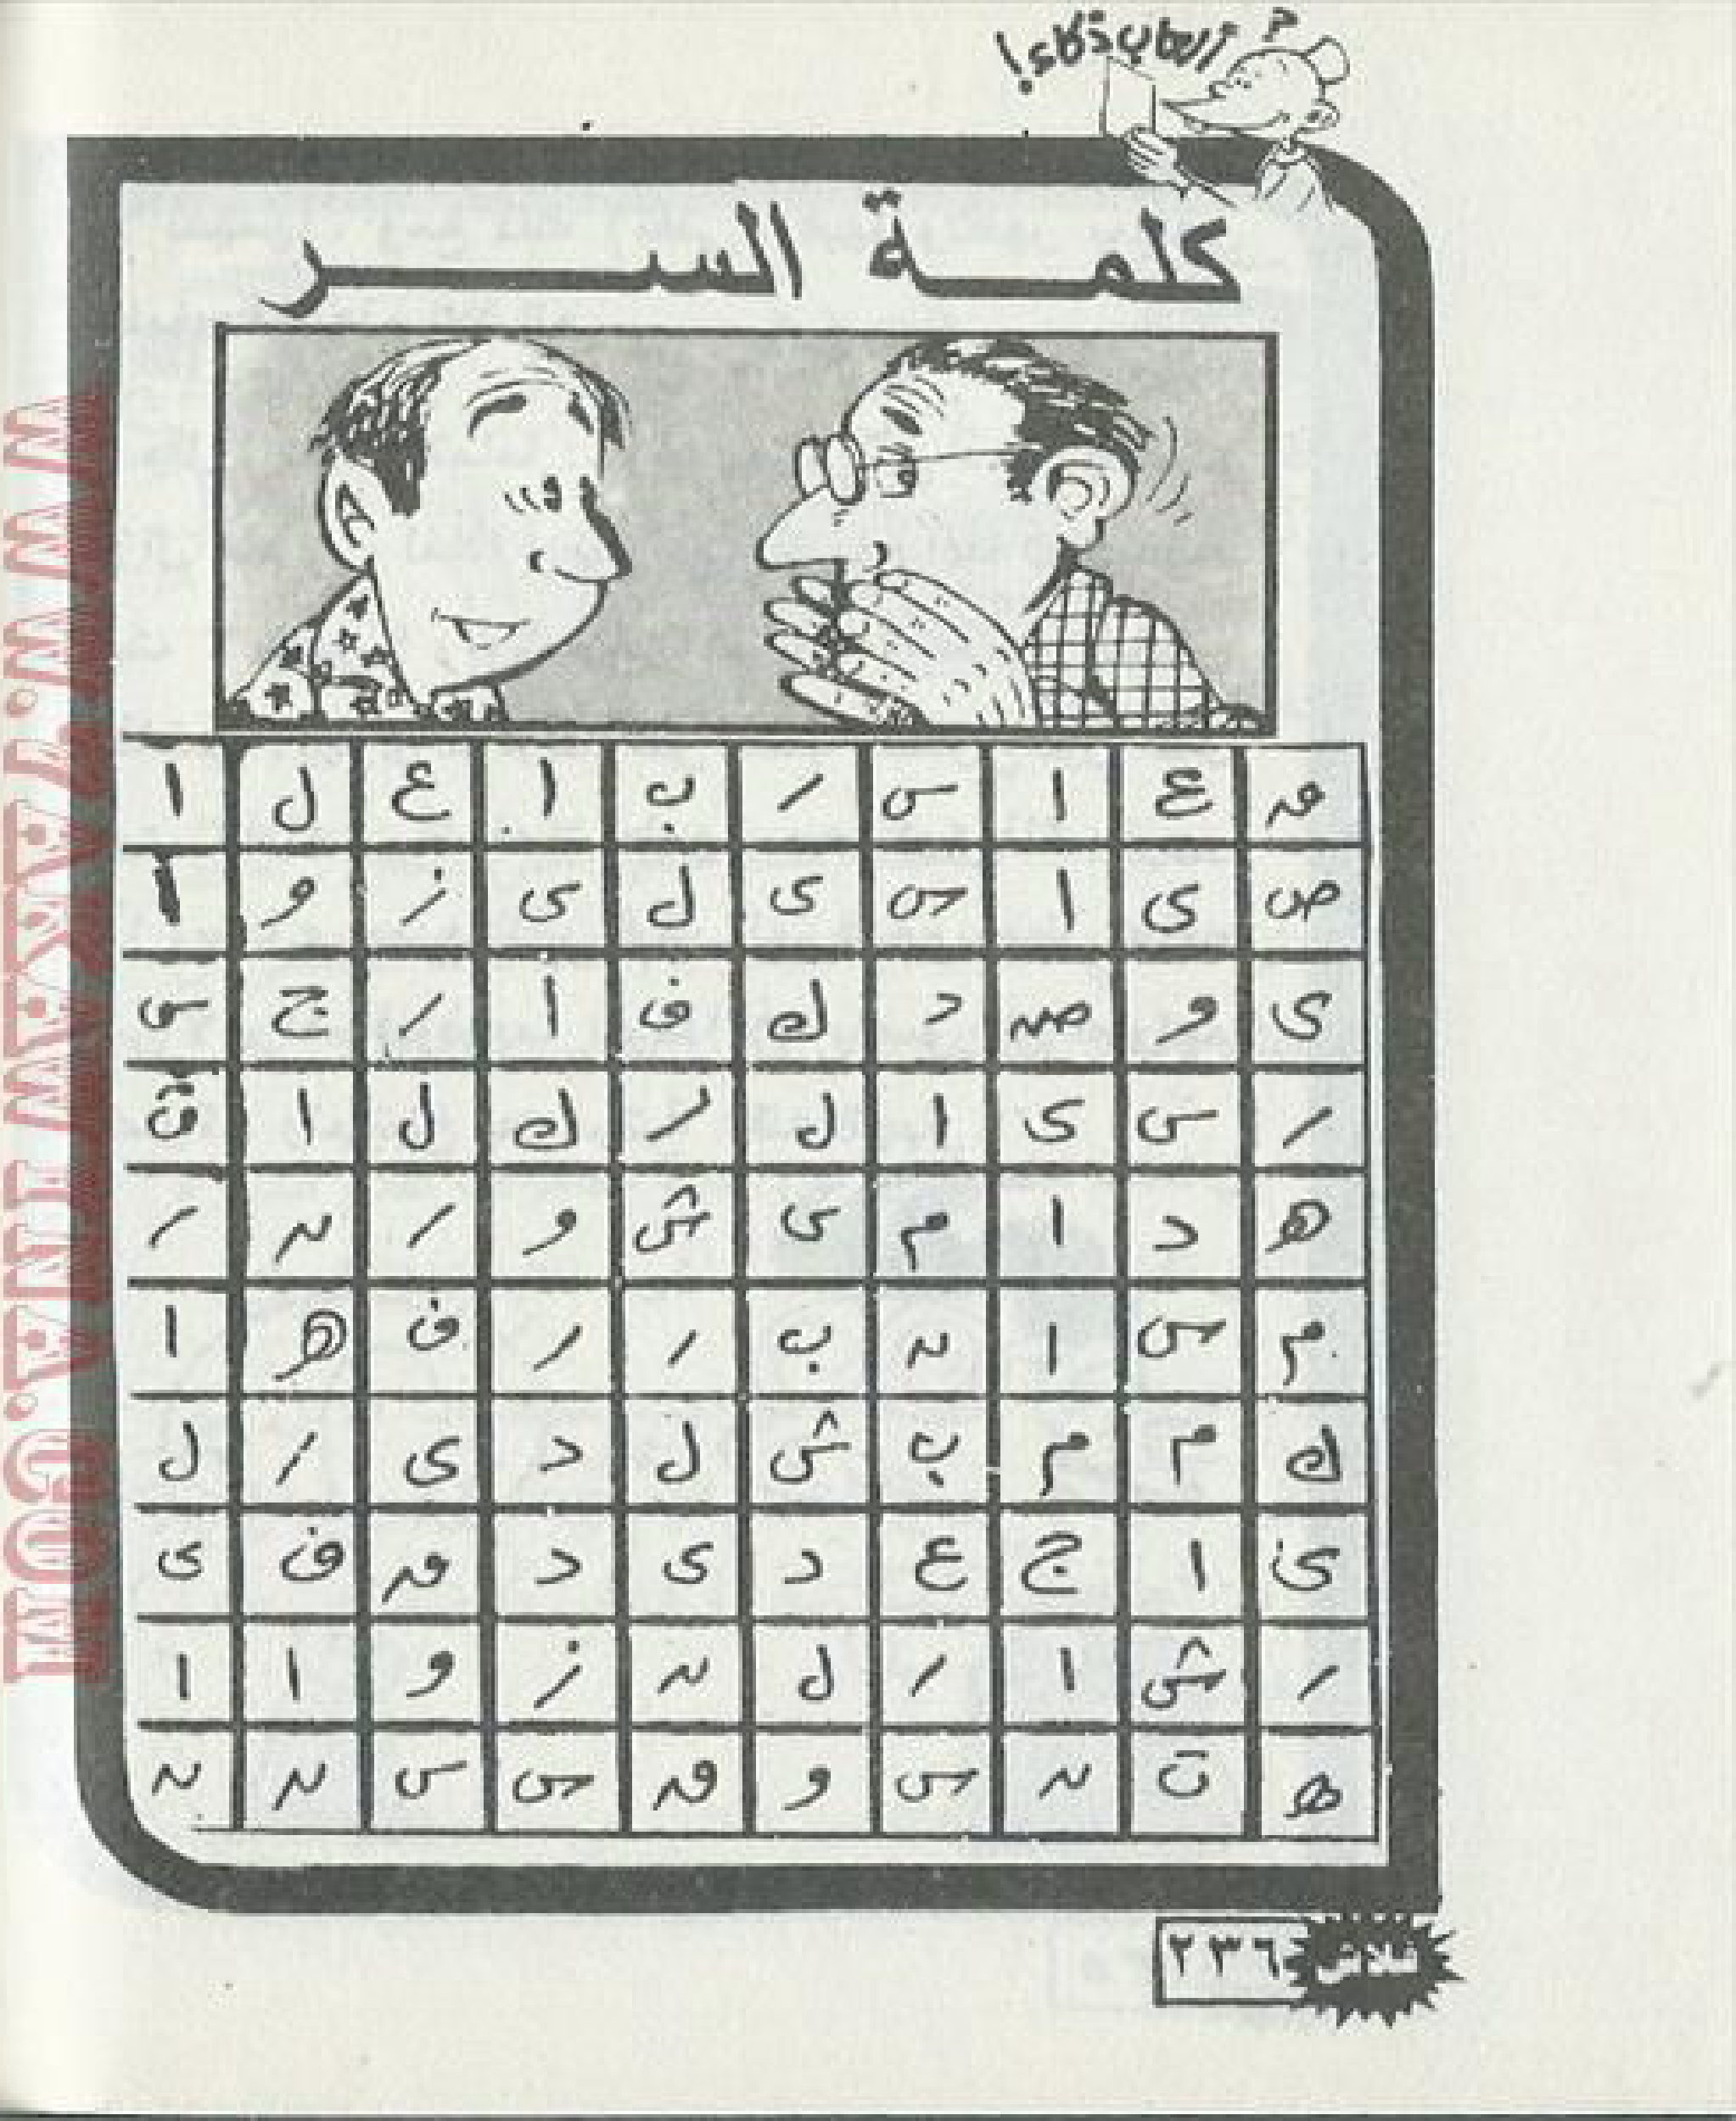 ألعاب ذكاء!
كلمة السر
م ع ا س ر ب ا ع ل ا
ص ى ا س ى ل ى ز و ا
ى و ص د ك ف ا ر ج س
ر س ى ا ل ر ك ل ا ق
ه د ا م ى ش و ر ن ر
م س ا ن ب ر ر ف ه ا
ك م م ب ش ل د ى ر ل
ى ا ج ع د ى د م ف ى
ر ش ا ر ل ن ز و ا ا
ه ت ن س و م س س ن ن
٢٣٦ فلاش
WWW.7AKAWINA.COM